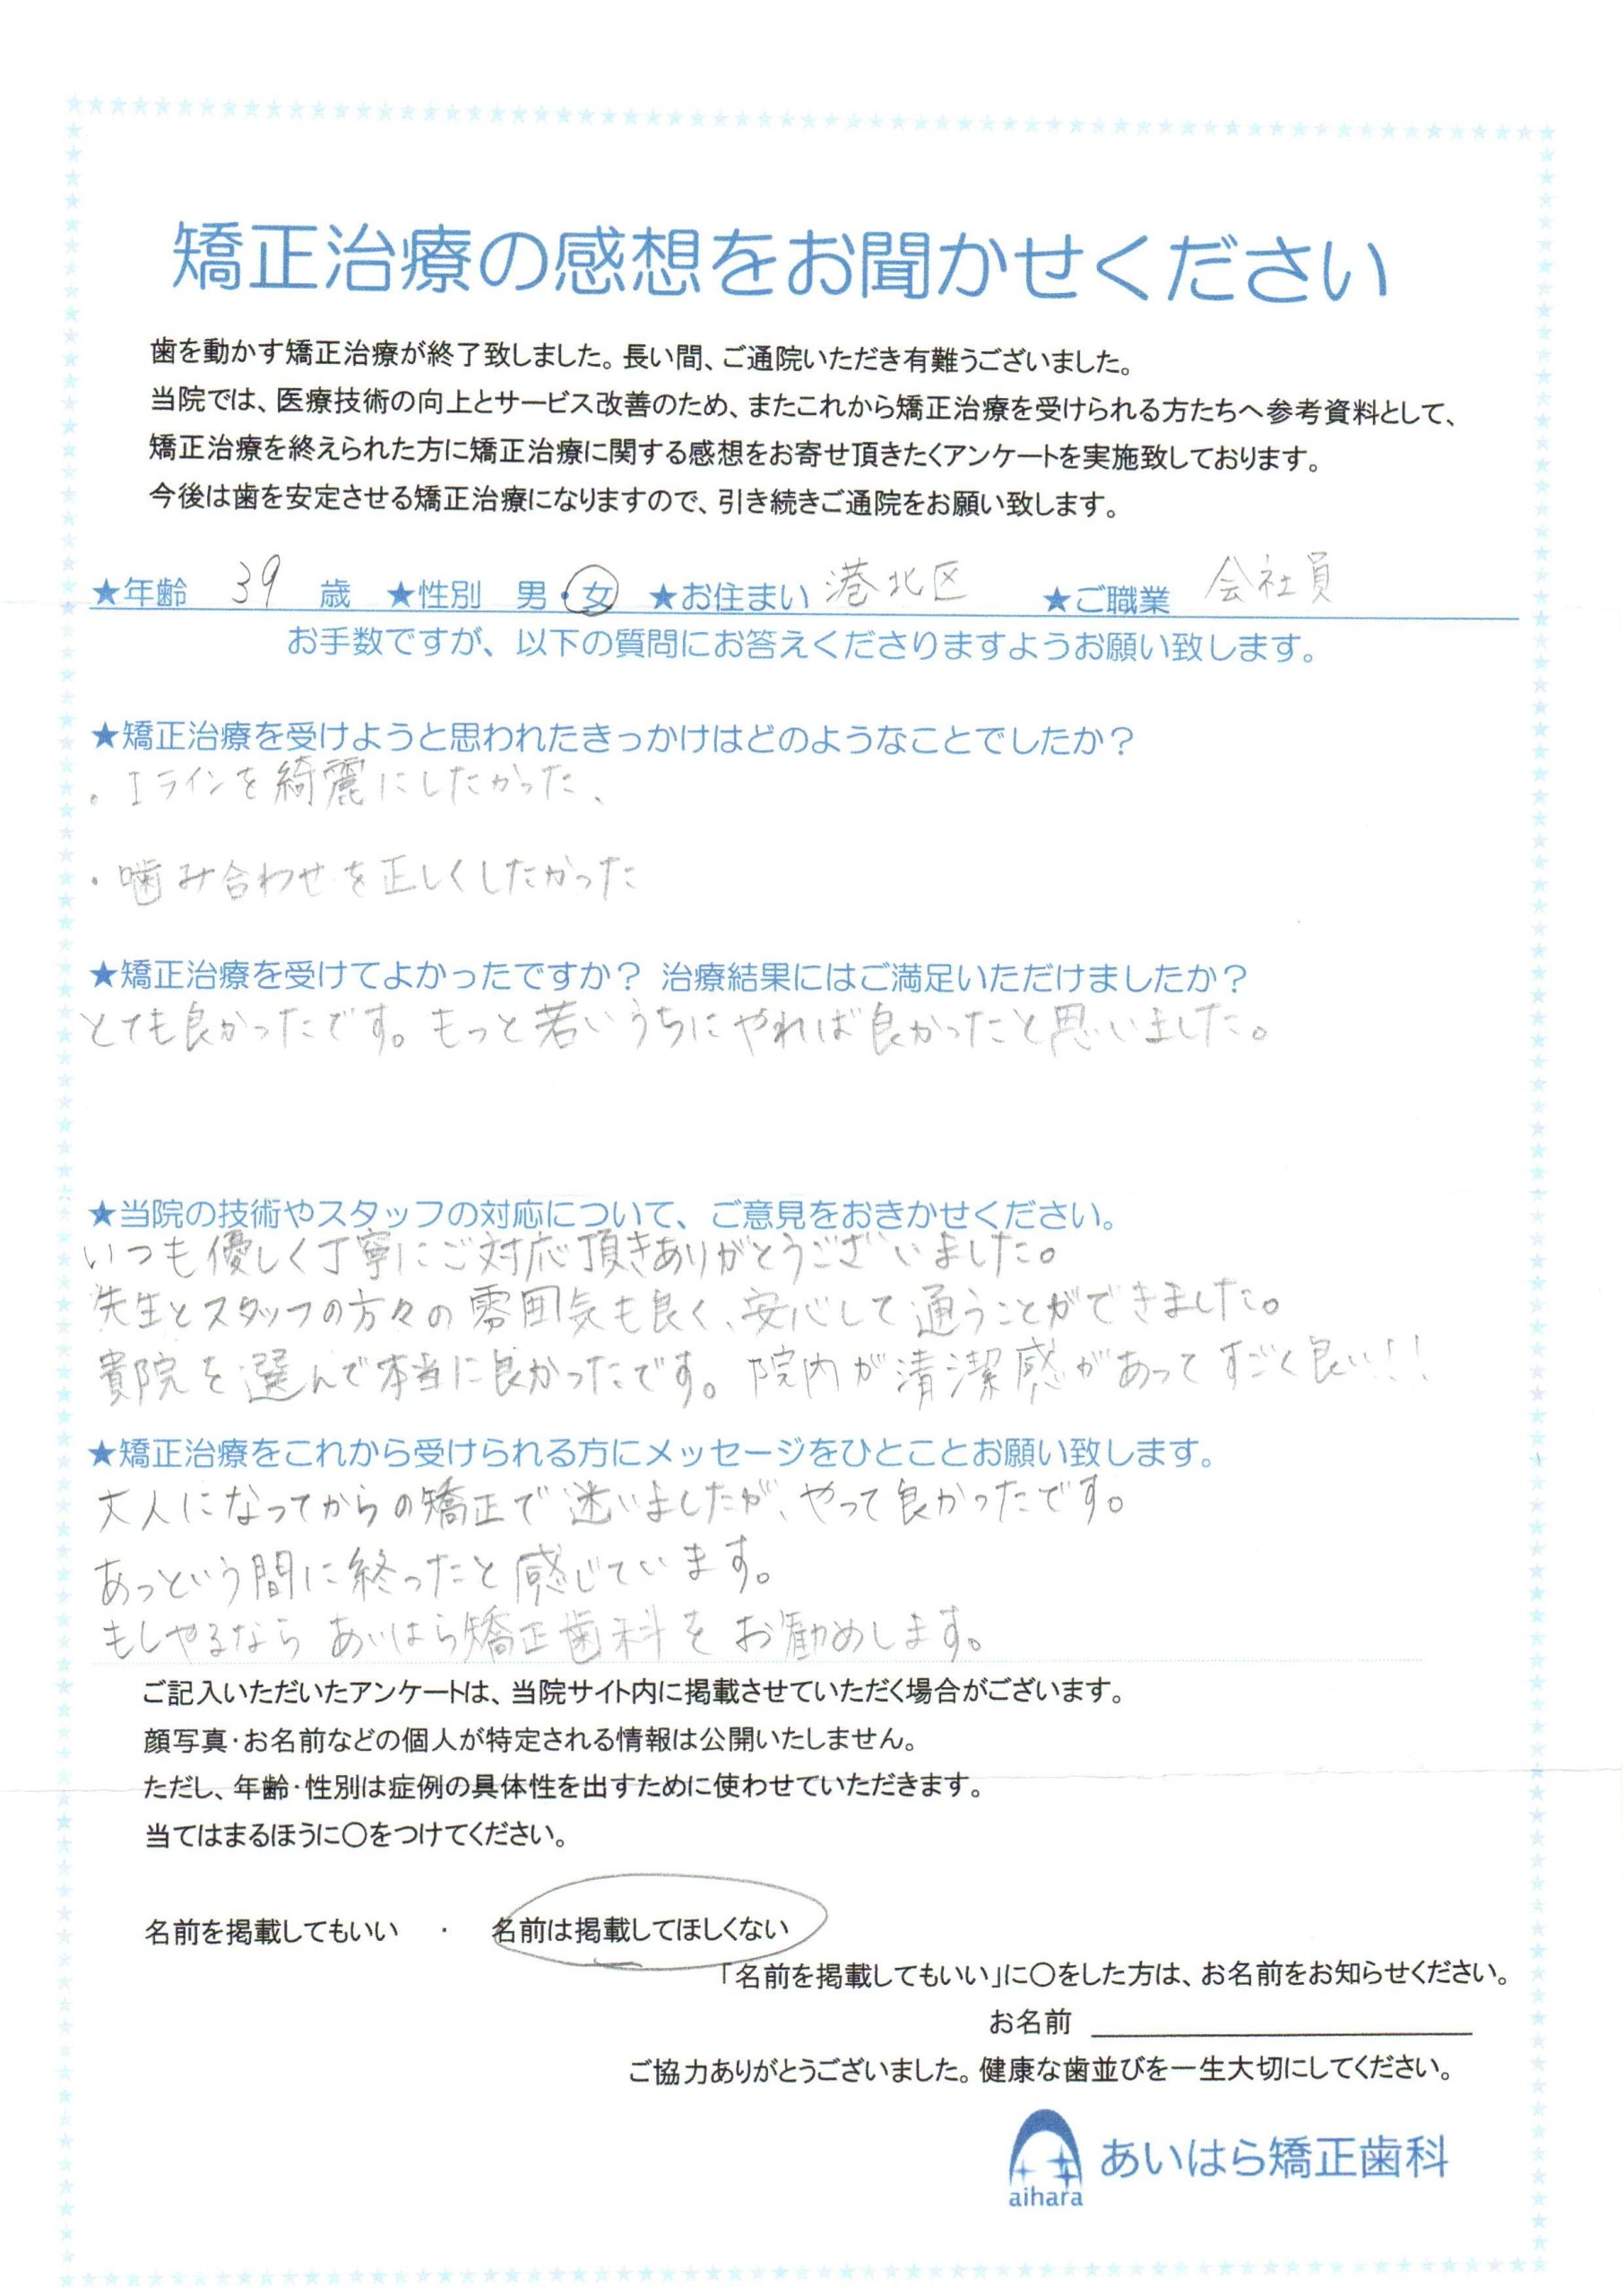 矯正治療の感想をお聞かせください
歯を動かす矯正治療が終了致しました。長い間、ご通院いただき有難うございました。
当院では、医療技術の向上とサービス改善のため、またこれから矯正治療を受けられる方たちへ参考資料として、
矯正治療を終えられた方に矯正治療に関する感想をお寄せ頂きたくアンケートを実施致しております。
今後は歯を安定させる矯正治療になりますので、引き続きご通院をお願い致します。
★年齢 39 歳 ★性別 男・女 ★お住まい 港北区 ★ご職業 会社員
お手数ですが、以下の質問にお答えくださりますようお願い致します。
★矯正治療を受けようと思われたきっかけはどのようなことでしたか？
・Iラインを綺麗にしたかった、
・噛み合わせを正しくしたかった
★矯正治療を受けてよかったですか？ 治療結果にはご満足いただけましたか？
とても良かったです。もっと若いうちにやれば良かったと思いました。
★当院の技術やスタッフの対応について、ご意見をおきかせください。
いつも優しく丁寧にご対応頂きありがとうございました。
先生とスタッフの方々の雰囲気も良く、安心して通うことができました。
貴院を選んで本当に良かったです。院内が清潔感があってすごく良い!!
★矯正治療をこれから受けられる方にメッセージをひとことお願い致します。
大人になってからの矯正で迷いましたが、やって良かったです。
あっという間に終ったと感じています。
もしやるなら あいはら矯正歯科をお勧めします。
ご記入いただいたアンケートは、当院サイト内に掲載させていただく場合がございます。
顔写真・お名前などの個人が特定される情報は公開いたしません。
ただし、年齢・性別は症例の具体性を出すために使わせていただきます。
当てはまるほうに〇をつけてください。
名前を掲載してもいい ・ 名前は掲載してほしくない
「名前を掲載してもいい」に〇をした方は、お名前をお知らせください。
お名前
ご協力ありがとうございました。健康な歯並びを一生大切にしてください。
あいはら矯正歯科
aihara